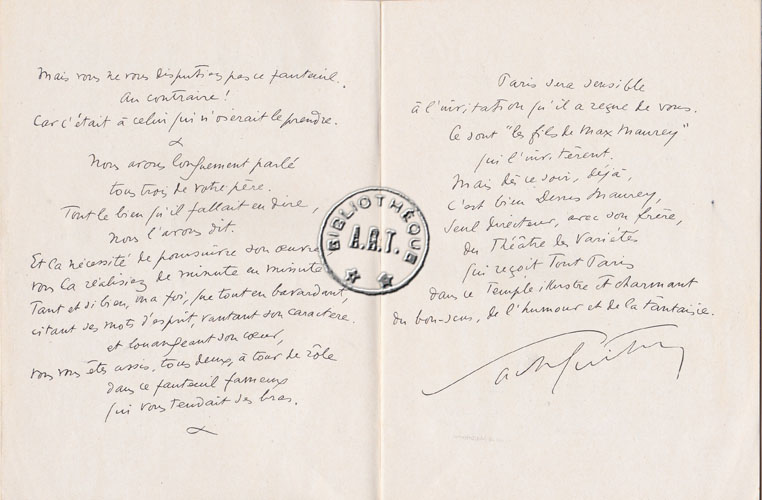 Mais vous ne vous disputiez pas ce fauteuil.
Au contraire!
Car c'était à celui qui n'oserait le prendre.
Nous avons longuement parlé
tous trois de votre père.
Tout le bien qu'il fallait en dire,
nous l'avons dit.
Et la nécessité de poursuivre son œuvre
vous la réalisiez de minute en minute
Tant et si bien, ma foi, que tout en bavardant,
citant ses mots d'esprit, vantant son caractère
et louangeant son cœur,
vous vous êtes assis, tous deux, à tour de rôle
dans ce fauteuil fameux
qui vous tendait ses bras.
BIBLIOTHÈQUE
A.R.T.
Paris sera sensible
à l'invitation qu'il a reçue de vous.
Ce sont "les fils de Max Maurey"
qui l'invitèrent.
Mais dès ce soir, déjà,
c'est bien Denis Maurey,
seul directeur, avec son frère,
du Théâtre des Variétés
qui reçoit Tout Paris
dans ce Temple illustre et charmant
du bon-sens, de l'humour et de la fantaisie.
Sacha Guitry